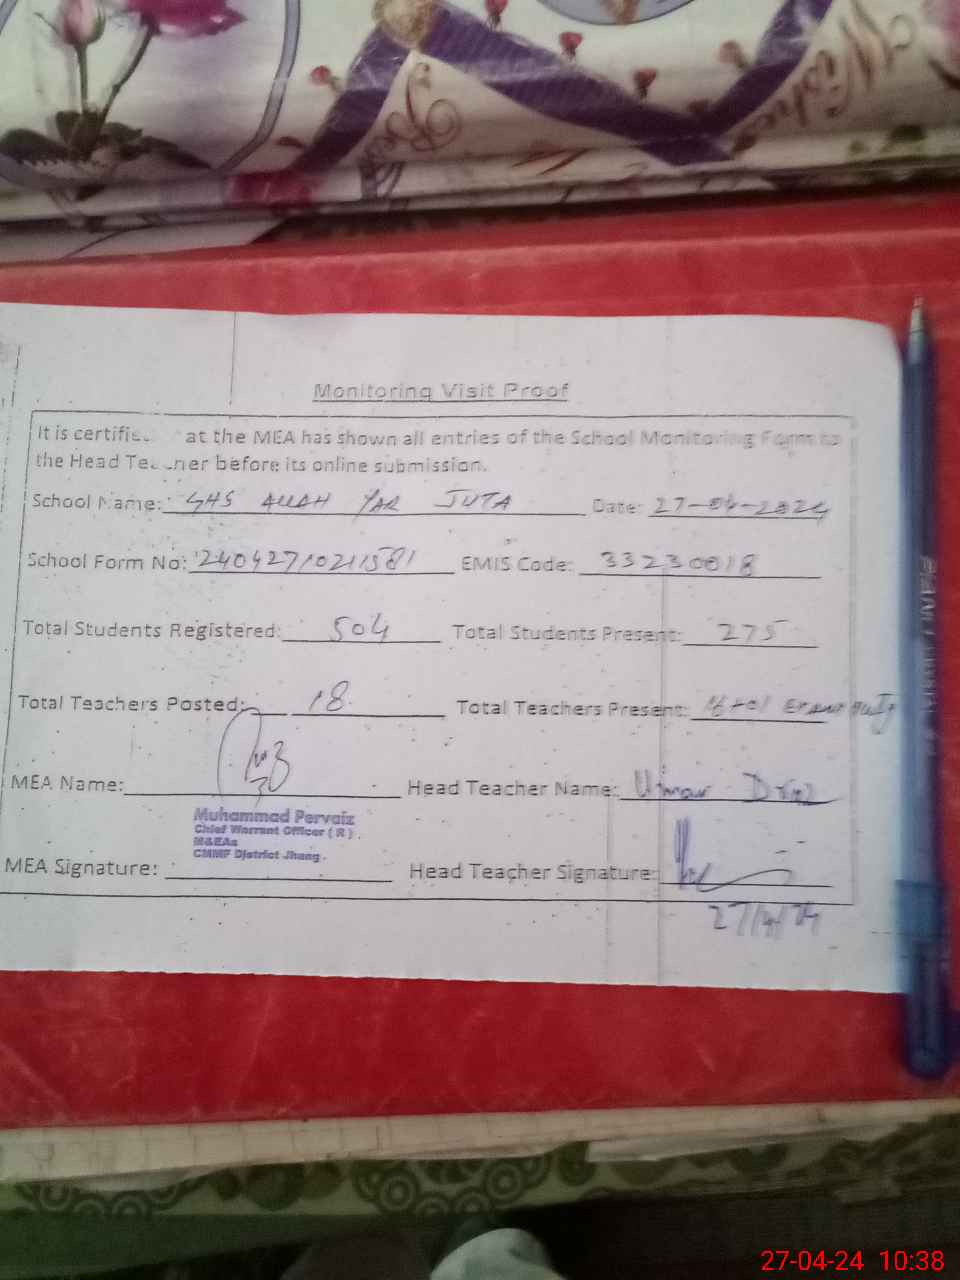 Best Wishes
Monitoring Visit Proof
It is certifie at the MEA has shown all entries of the School Monitoring Form to
the Head Teacher before its online submission.
School Name: GHS ALLAH YAR JUTA Date: 27-04-2024
School Form No: 240427102111581 EMIS Code: 33230018
Total Students Registered: 504 Total Students Present: 275
Total Teachers Posted: 18 Total Teachers Present: 16+01 Exam Duty
MEA Name: Head Teacher Name: Umar
Muhammad Pervaiz
Chief Warrant Officer ( R )
M&EAs
CMMF District Jhang.
MEA Signature: Head Teacher Signature:
27/4/24
27-04-24 10:38